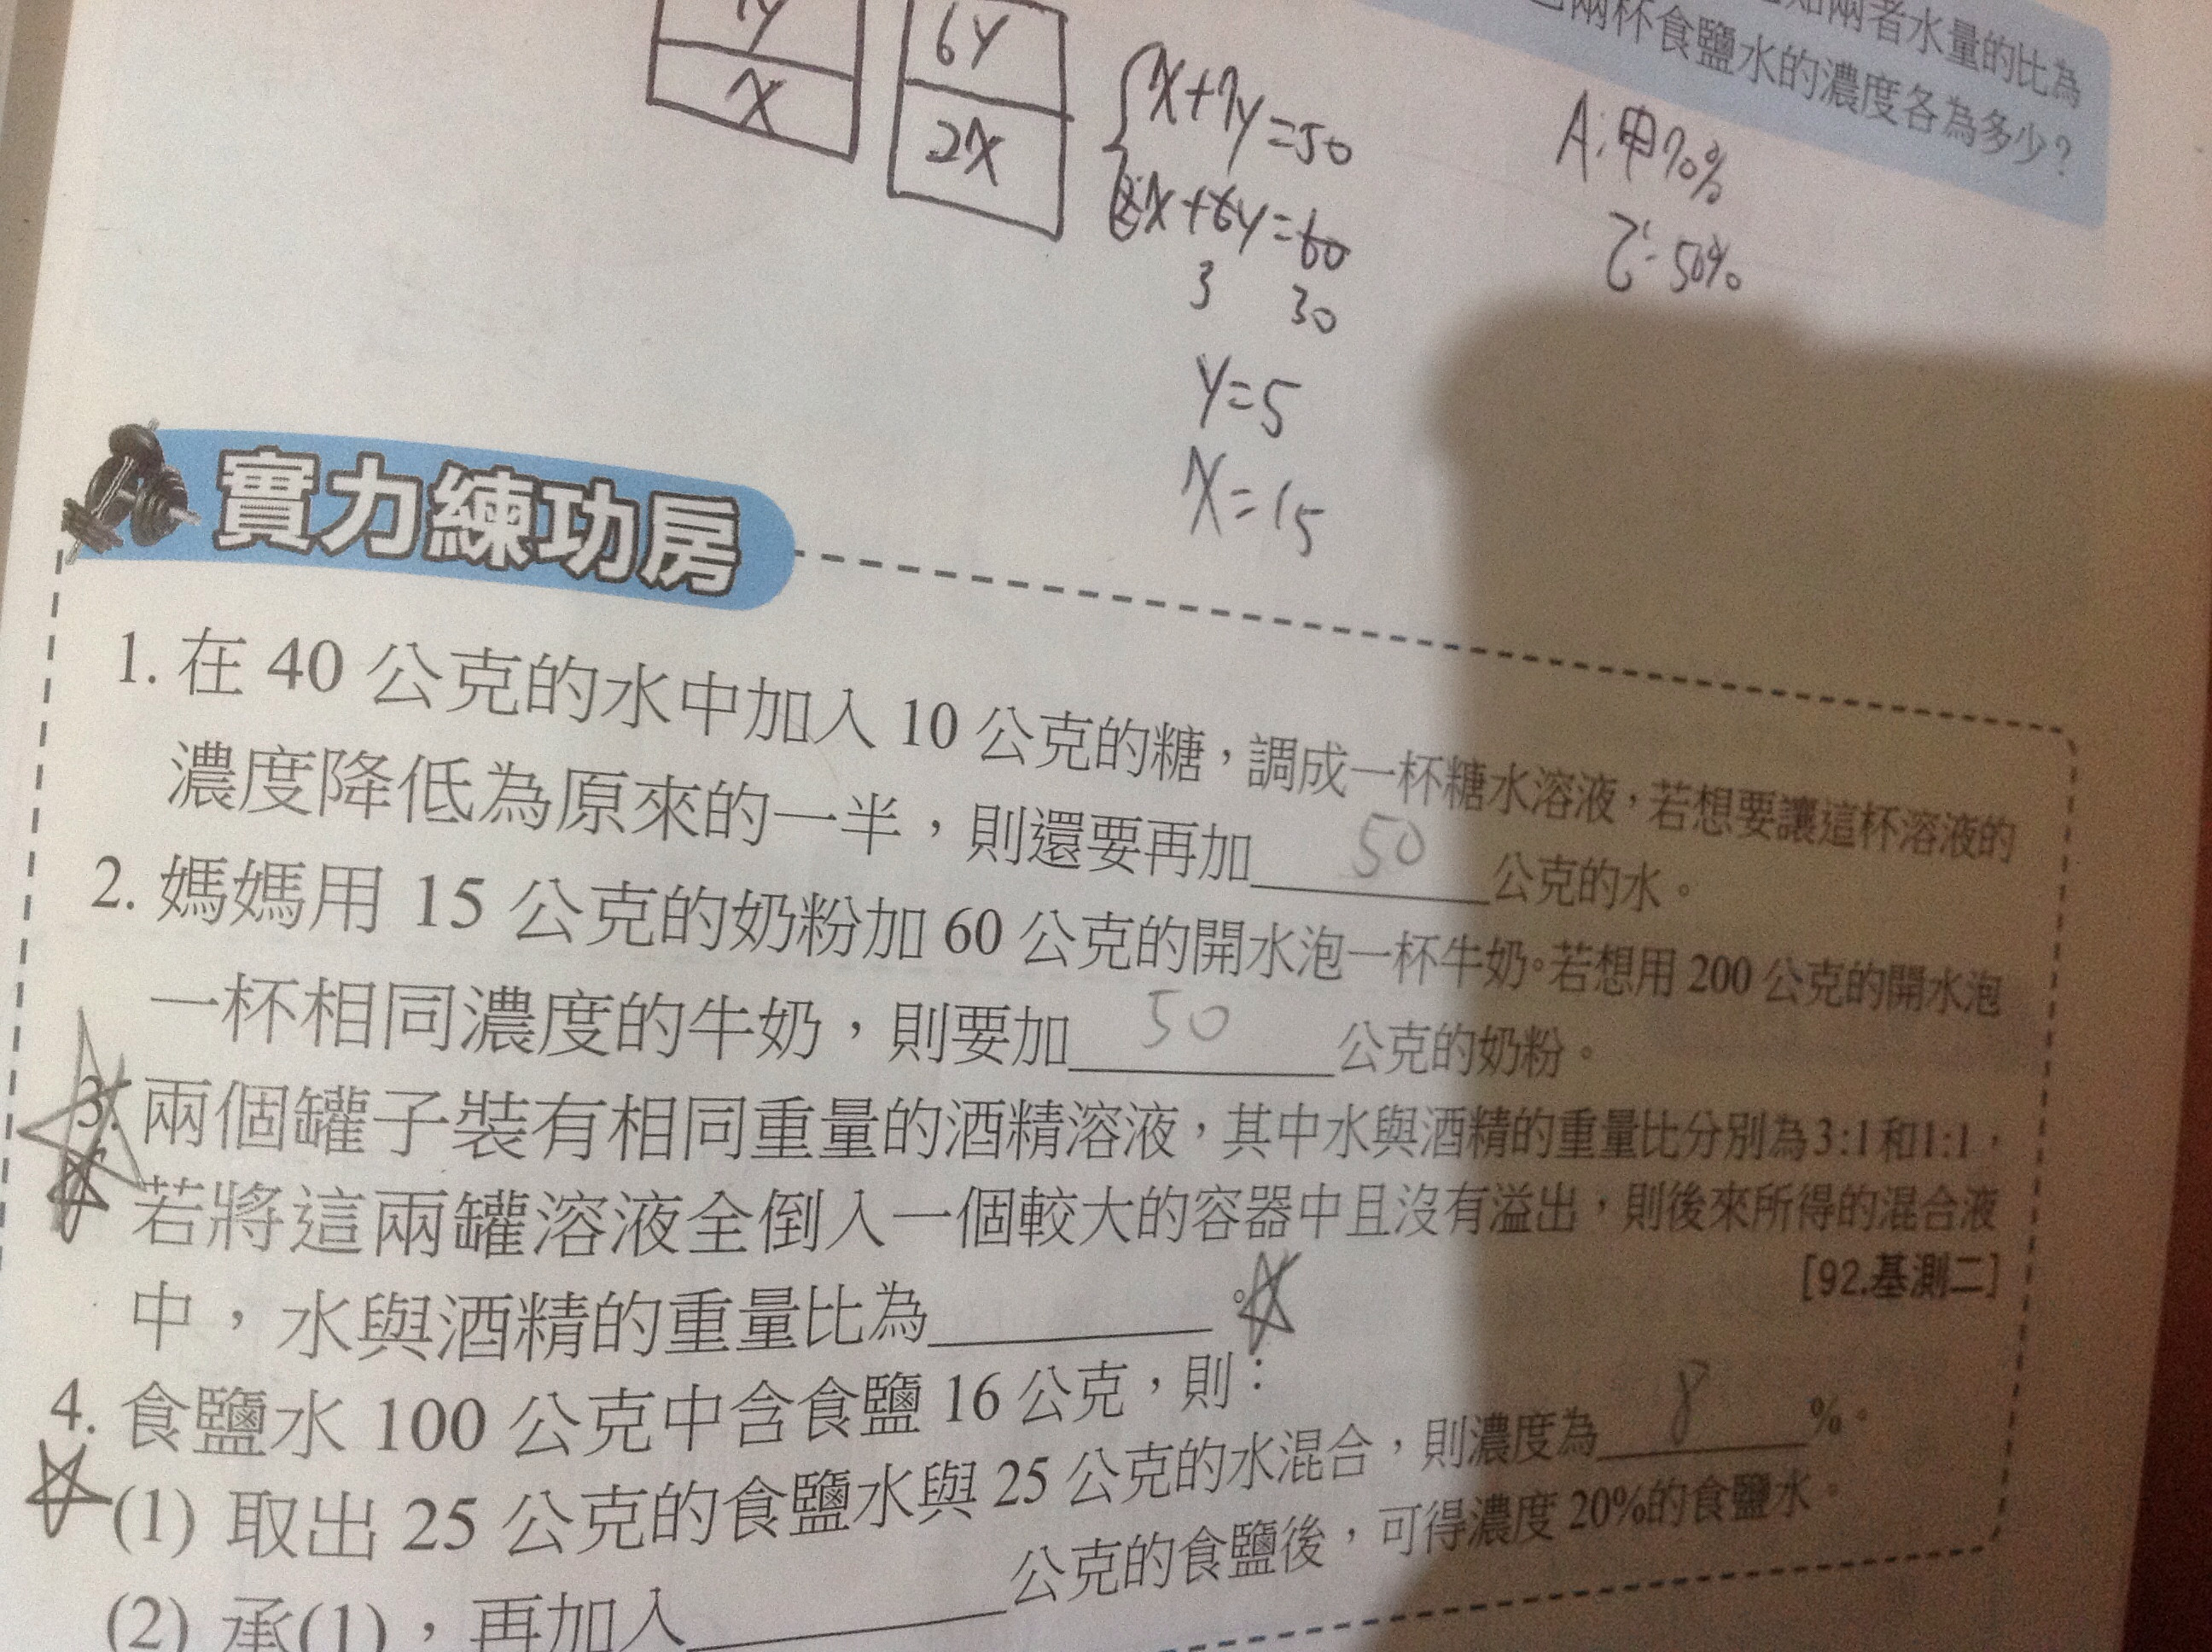 兩者水量的比為
兩杯食鹽水的濃度各為多少？
y
x
6y
2x
x+7y=50
2x+6y=60
3 30
y=5
x=15
A:甲70%
乙:50%
實力練功房
1. 在 40 公克的水中加入 10 公克的糖，調成一杯糖水溶液，若想要讓這杯溶液的
濃度降低為原來的一半，則還要再加 50 公克的水。
2. 媽媽用 15 公克的奶粉加 60 公克的開水泡一杯牛奶。若想用 200 公克的開水泡
一杯相同濃度的牛奶，則要加 50 公克的奶粉。
3. 兩個罐子裝有相同重量的酒精溶液，其中水與酒精的重量比分別為3:1和1:1，
若將這兩罐溶液全倒入一個較大的容器中且沒有溢出，則後來所得的混合液
中，水與酒精的重量比為______。
[92.基測二]
4. 食鹽水 100 公克中含食鹽 16 公克，則：
(1) 取出 25 公克的食鹽水與 25 公克的水混合，則濃度為 8 %。
(2) 承(1)，再加入______公克的食鹽後，可得濃度 20%的食鹽水。